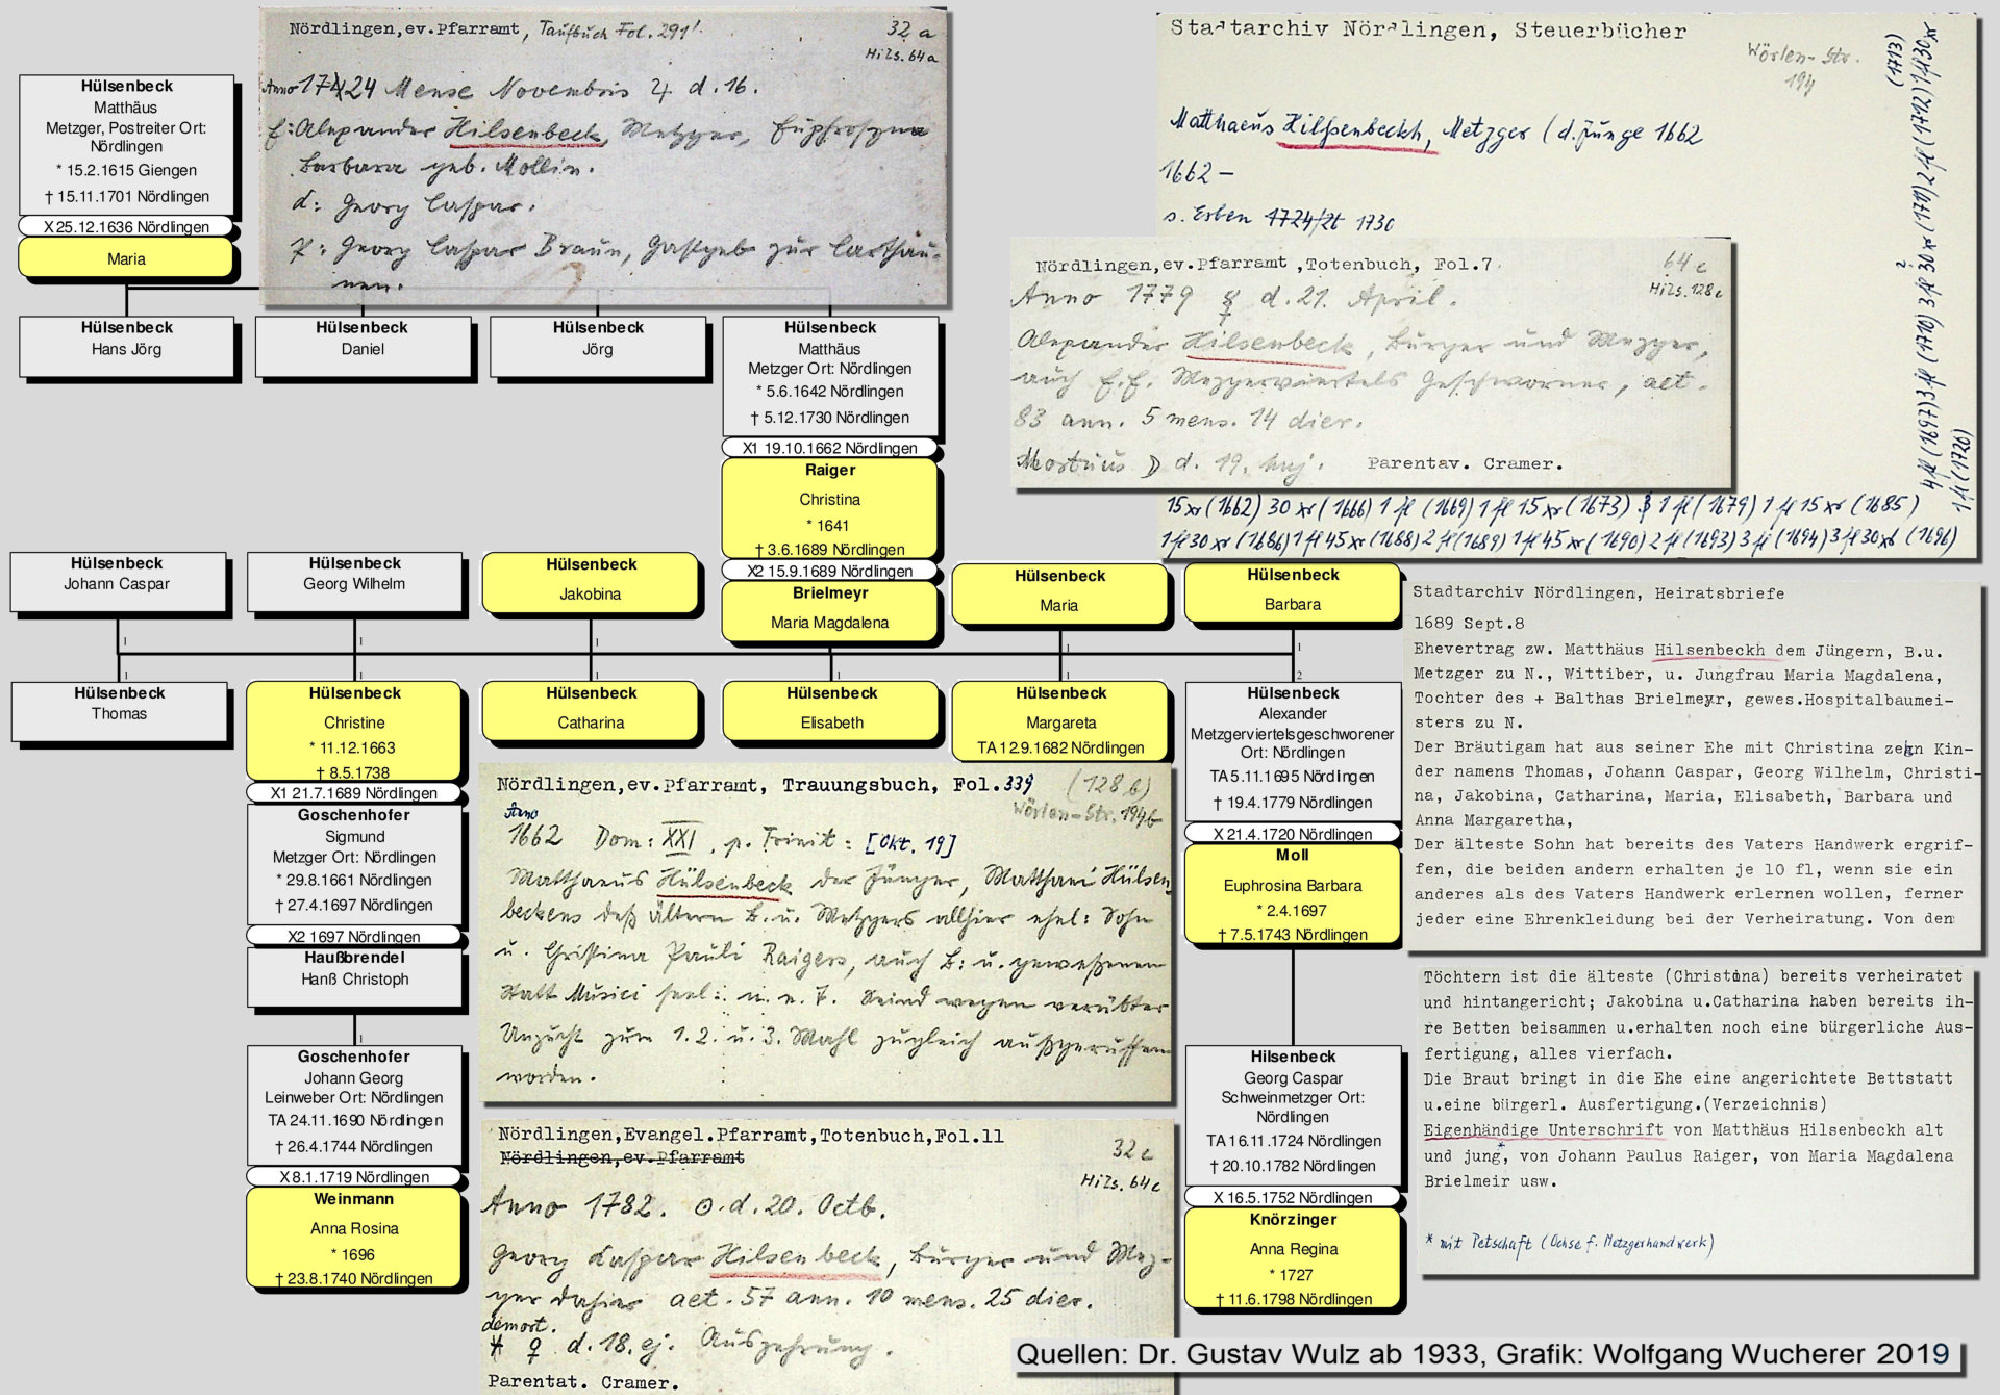 Hülsenbeck
Matthäus
Metzger, Postreiter Ort:
Nördlingen
* 15.2.1615 Giengen
† 15.11.1701 Nördlingen
X 25.12.1636 Nördlingen
Maria
Nördlingen, ev. Pfarramt, Taufbuch Fol. 291'.
32 a
Hils. 64a
Anno 1724 Mense Novembris 4 d. 16.
f: Alexander Hilsenbeck, Metzger, Euphrosyna
Barbara geb. Mollin.
d: Georg Caspar.
p: Georg Caspar Braun, Gastgeb zur Carthau-
nen.
Stadtarchiv Nördlingen, Steuerbücher
Wörlen-Str.
194
Matthaeus Hilsenbeckh, Metzger (d. Junge 1662
1662 –
s. Erben 1724/26 1730
15 xr (1662) 30 xr (1666) 1 fl (1669) 1 fl 15 xr (1673) 1 fl (1679) 1 fl 15 xr (1685)
1 fl 30 xr (1686) 1 fl 45 xr (1688) 2 fl (1689) 1 fl 45 xr (1690) 2 fl (1693) 3 fl (1694) 3 fl 30 xr (1696)
Nördlingen, ev. Pfarramt ,Totenbuch, Fol.7.
64 c
Hils. 128 c
Anno 1779 d. 21. April.
Alexander Hilsenbeck, Bürger und Mezger,
auch E.E. Mezgerviertels Geschworner, aet.
83 ann. 5 mens. 14 dier.
Mortuus d. 19. huj. Parentav. Cramer.
Hülsenbeck
Hans Jörg
Hülsenbeck
Daniel
Hülsenbeck
Jörg
Hülsenbeck
Matthäus
Metzger Ort: Nördlingen
* 5.6.1642 Nördlingen
† 5.12.1730 Nördlingen
X1 19.10.1662 Nördlingen
Raiger
Christina
* 1641
† 3.6.1689 Nördlingen
X2 15.9.1689 Nördlingen
Brielmeyr
Maria Magdalena
Hülsenbeck
Johann Caspar
Hülsenbeck
Georg Wilhelm
Hülsenbeck
Jakobina
Hülsenbeck
Maria
Hülsenbeck
Barbara
Hülsenbeck
Thomas
Hülsenbeck
Christine
* 11.12.1663
† 8.5.1738
X1 21.7.1689 Nördlingen
Goschenhofer
Sigmund
Metzger Ort: Nördlingen
* 29.8.1661 Nördlingen
† 27.4.1697 Nördlingen
X2 1697 Nördlingen
Haußbrendel
Hanß Christoph
Goschenhofer
Johann Georg
Leinweber Ort: Nördlingen
TA 24.11.1690 Nördlingen
† 26.4.1744 Nördlingen
X 8.1.1719 Nördlingen
Weinmann
Anna Rosina
* 1696
† 23.8.1740 Nördlingen
Hülsenbeck
Catharina
Hülsenbeck
Elisabeth
Hülsenbeck
Margareta
TA 12.9.1682 Nördlingen
Hülsenbeck
Alexander
Metzgerviertelsgeschworener
Ort: Nördlingen
TA 5.11.1695 Nördlingen
† 19.4.1779 Nördlingen
X 21.4.1720 Nördlingen
Moll
Euphrosina Barbara
* 2.4.1697
† 7.5.1743 Nördlingen
Hilsenbeck
Georg Caspar
Schweinmetzger Ort:
Nördlingen
TA 16.11.1724 Nördlingen
† 20.10.1782 Nördlingen
X 16.5.1752 Nördlingen
Knörzinger
Anna Regina
* 1727
† 11.6.1798 Nördlingen
Nördlingen, ev. Pfarramt, Trauungsbuch, Fol. 339
(128 b)
Wörlen-Str. 194b
Anno
1662 Dom: XXI, p. Trinit: [Okt. 19]
Matthaeus Hülsenbeck der Jünger, Matthaei Hülsen
beckens deß ältern B. u. Metzgers allhier ehel: Sohn
u. Christina Pauli Raigers, auch B: u. gewesenen
Statt Musici seel: u. n. T. Seind wegen verübter
Unzucht zum 1. 2. u. 3. Mahl zugleich außgeruffen
worden.
Nördlingen, Evangel. Pfarramt, Totenbuch, Fol.11
Nördlingen, ev. Pfarramt
32 c
Hils. 64c
Anno 1782. ⊙. d. 20. Octb.
Georg Caspar Hilsenbeck, Bürger und Mez-
ger dahier aet. 57 ann. 10 mens. 25 dier.
demort.
♀ d. 18. ej. Auszehrung.
Parentat. Cramer.
Stadtarchiv Nördlingen, Heiratsbriefe
1689 Sept.8
Ehevertrag zw. Matthäus Hilsenbeckh dem Jüngern, B.u.
Metzger zu N., Wittiber, u. Jungfrau Maria Magdalena,
Tochter des + Balthas Brielmeyr, gewes.Hospitalbaumei-
sters zu N.
Der Bräutigam hat aus seiner Ehe mit Christina zehn Kin-
der namens Thomas, Johann Caspar, Georg Wilhelm, Christi-
na, Jakobina, Catharina, Maria, Elisabeth, Barbara und
Anna Margaretha,
Der älteste Sohn hat bereits des Vaters Handwerk ergrif-
fen, die beiden andern erhalten je 10 fl, wenn sie ein
anderes als des Vaters Handwerk erlernen wollen, ferner
jeder eine Ehrenkleidung bei der Verheiratung. Von den
Töchtern ist die älteste (Christina) bereits verheiratet
und hintangericht; Jakobina u.Catharina haben bereits ih-
re Betten beisammen u.erhalten noch eine bürgerliche Aus-
fertigung, alles vierfach.
Die Braut bringt in die Ehe eine angerichtete Bettstatt
u.eine bürgerl. Ausfertigung.(Verzeichnis)
Eigenhändige Unterschrift von Matthäus Hilsenbeckh alt
und jung,* von Johann Paulus Raiger, von Maria Magdalena
Brielmeir usw.
* mit Petschaft (Ochse f. Metzgerhandwerk)
Quellen: Dr. Gustav Wulz ab 1933, Grafik: Wolfgang Wucherer 2019